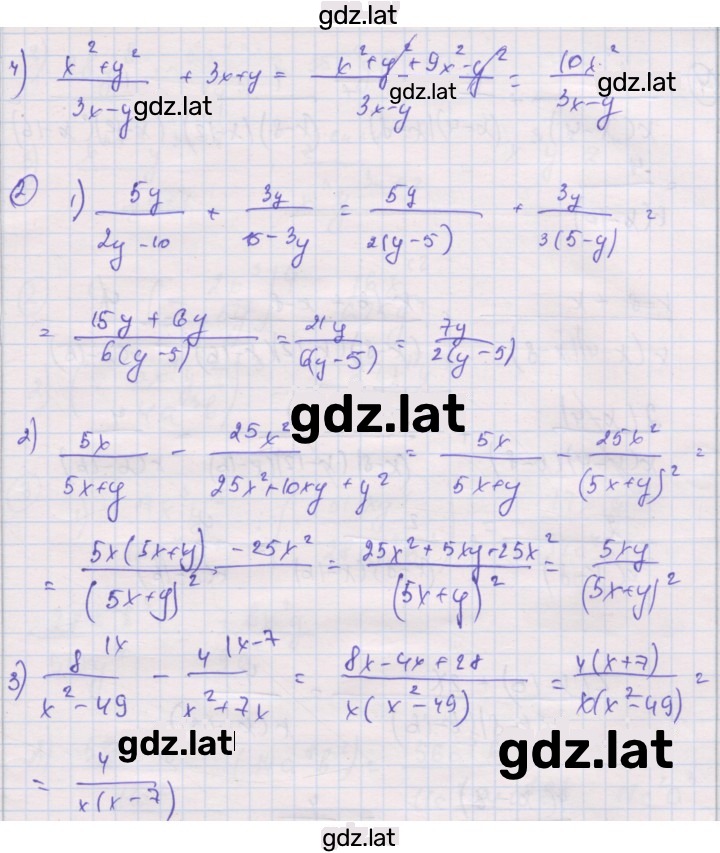 gdz.lat
4) (x² + y²)/(3x - y) + 3x + y = (x² + y² + 9x² - y²)/(3x - y) = 10x²/(3x - y)
gdz.lat gdz.lat
② 1) 5y/(2y - 10) + 3y/(15 - 3y) = 5y/(2(y - 5)) + 3y/(3(5 - y)) =
= (15y + 6y)/(6(y - 5)) = 21y/(6(y - 5)) = 7y/(2(y - 5))
gdz.lat
2) 5x/(5x + y) - 25x²/(25x² + 10xy + y²) = 5x/(5x + y) - 25x²/(5x + y)² =
= (5x(5x + y) - 25x²)/(5x + y)² = (25x² + 5xy - 25x²)/(5x + y)² = 5xy/(5x + y)²
3) 8 |x/(x² - 49) - 4 |x - 7/(x² + 7x) = (8x - 4x + 28)/(x(x² - 49)) = 4(x + 7)/(x(x² - 49)) =
gdz.lat gdz.lat
= 4/(x(x - 7))
gdz.lat